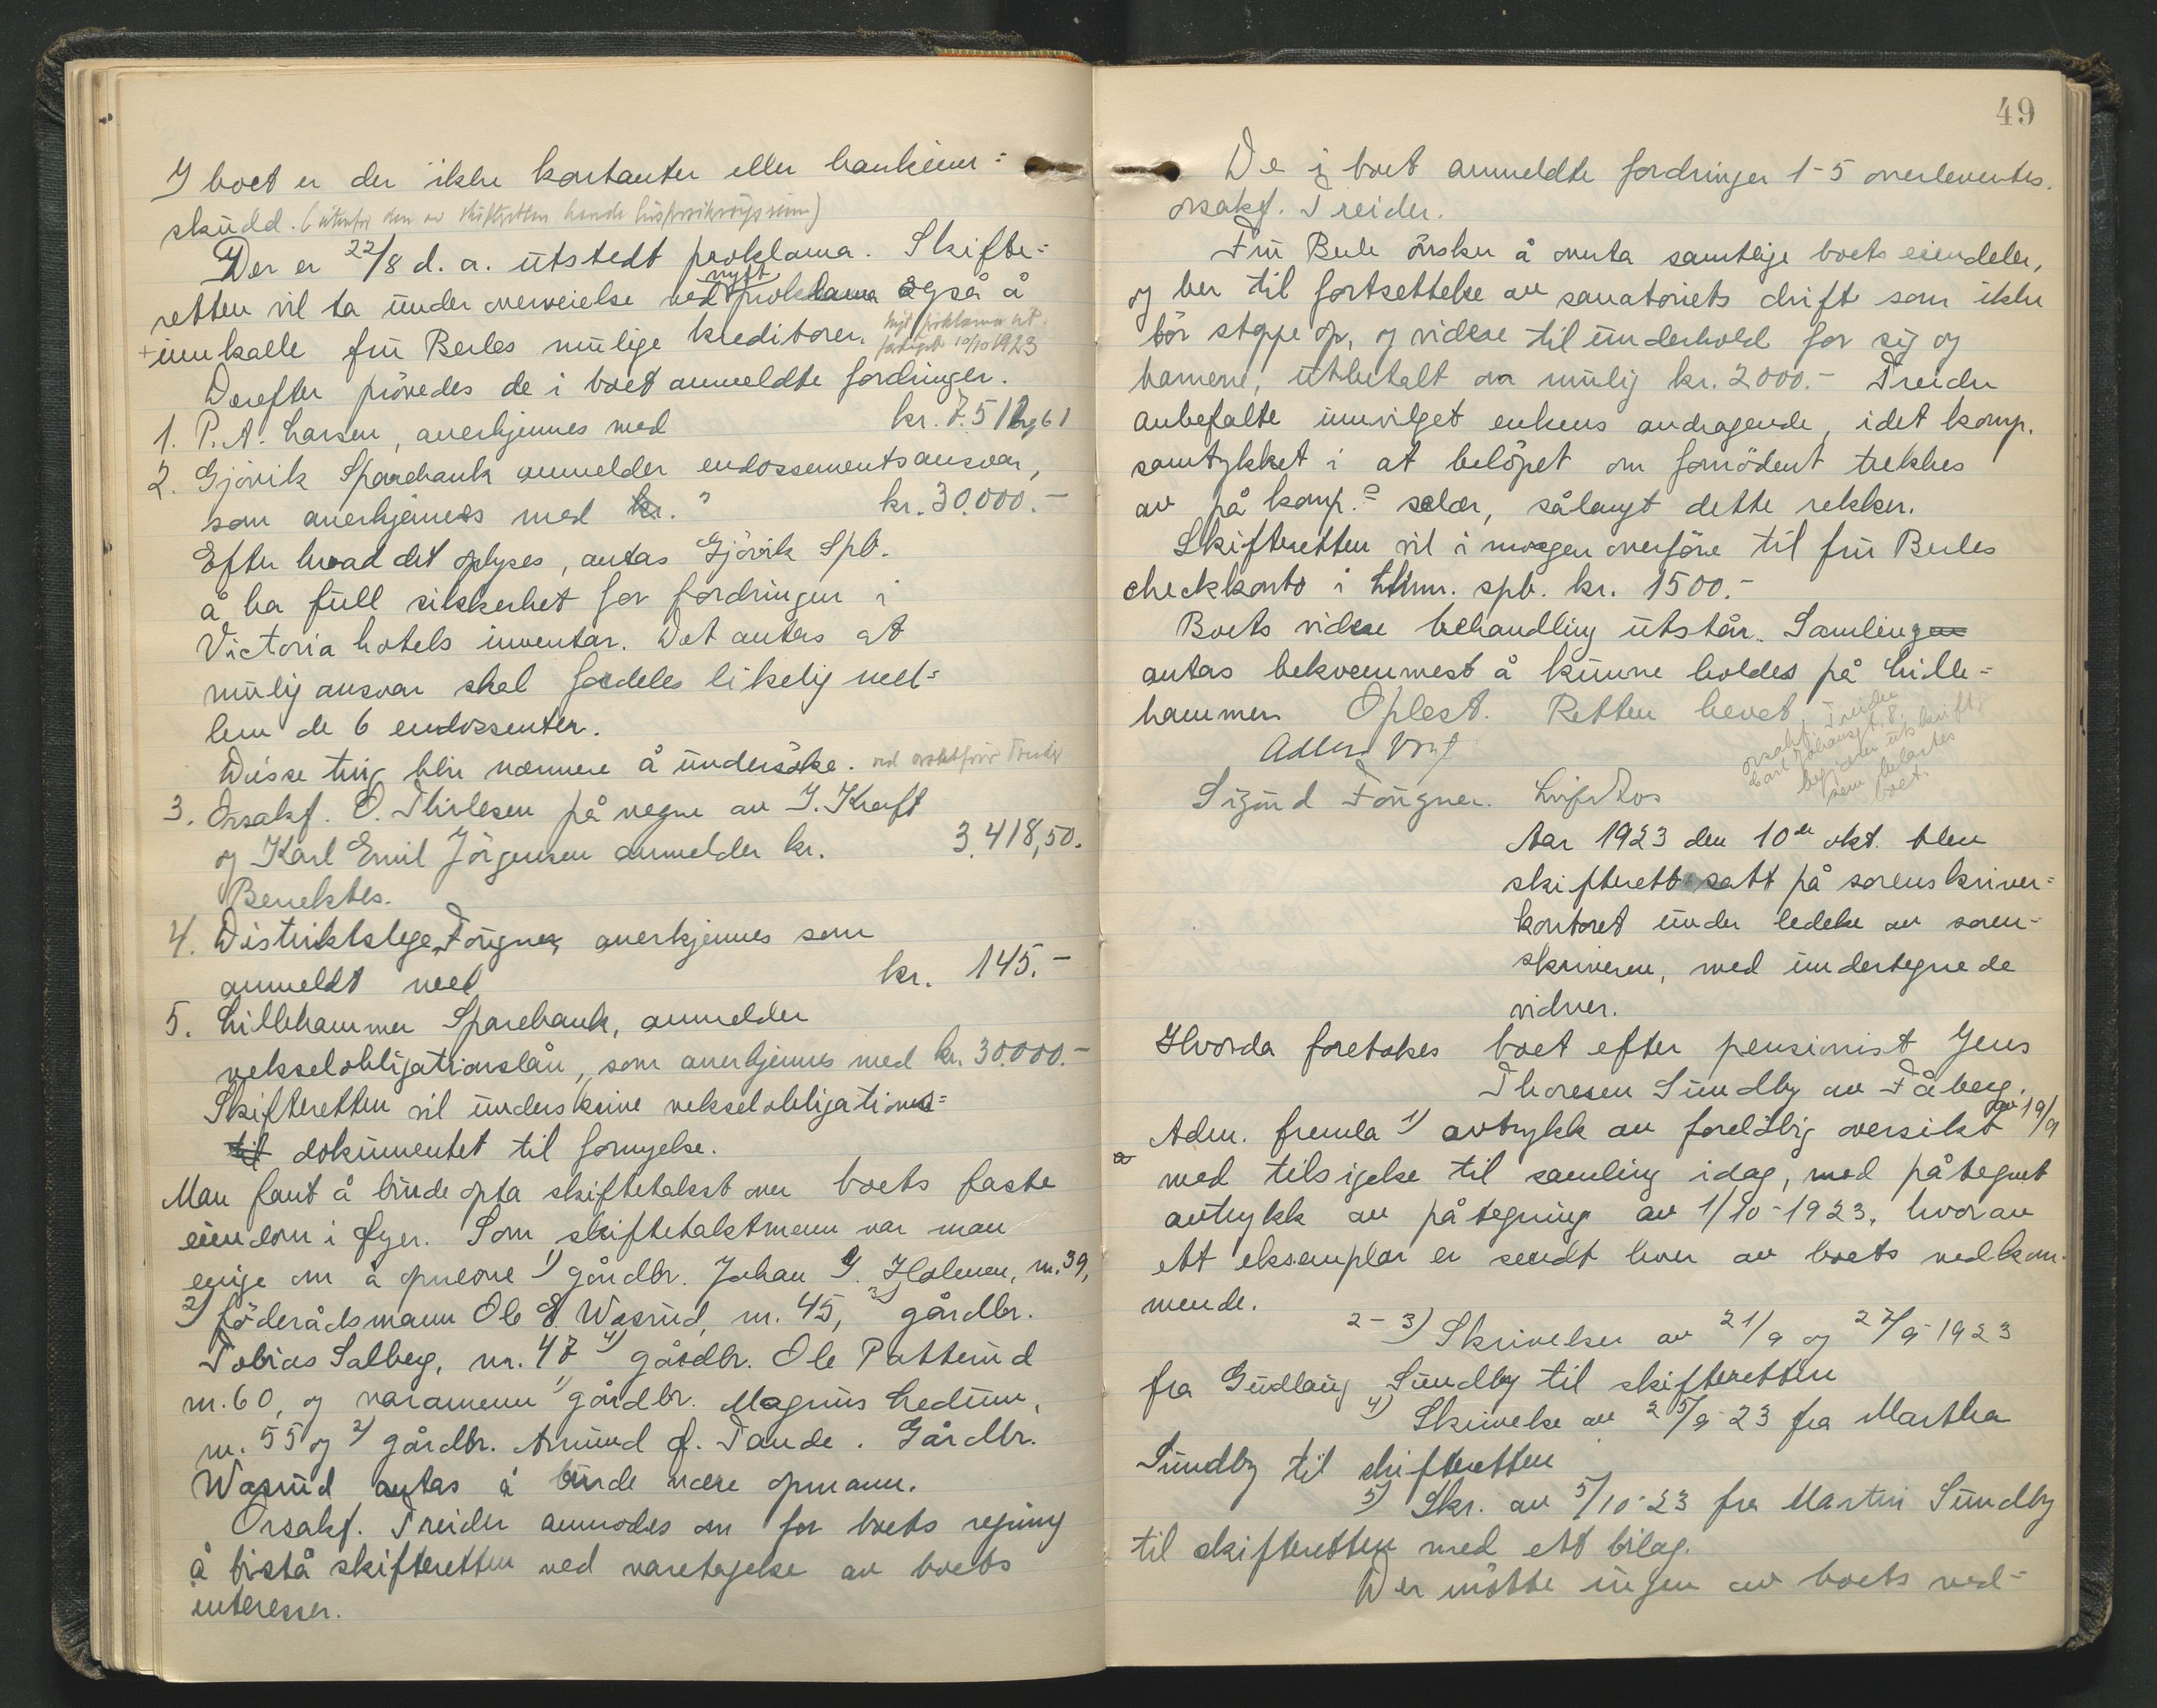 I boet er der ikke kontanter eller bankinn=
skudd. (utenfor den av skifteretten hævde livsforsikringssum)
Der er 22/8 d.a. utstedt proklama. Skifte=
retten vil ta under overveielse ved nytt proklama også å
innkalle fru Berles mulige kreditorer. Nyt proklama ut-
ferdiget 10/10 1923
Derefter prövedes de i boet anmeldte fordringer.
1. P. A. Larsen, anerkjennes med kr. 7.512,61
2. Gjövik Sparebank anmelder endossementsansvar,
som anerkjennes med kr. 30.000.-
Efter hvad det oplyses, antas Gjövik Spb.
å ha full sikkerhet for fordringen i
Victoria hotels inventar. Det antas at
mulig ansvar skal fordeles likelig mel=
lem de 6 endossenter.
Disse ting blir nærmere å undersöke. ved orsakförer Treider
3. Orsakf. O. Thirlesen på vegne av I. Kraft
og Karl Emil Jörgensen anmelder kr. 3.418,50.
Benektes.
4. Distriktslege Fougner, anerkjennes som
anmeldt med kr. 145.-
5. Lillehammer Sparebank, anmelder
vekselobligationslån, som anerkjennes med kr. 30.000.-
Skifteretten vil underskrive vekselobligations=
til dokumentet til fornyelse.
Man fant å burde opta skiftetakst over boets faste
eiendom i Öyer. Som skiftetakstmenn var man
enige om å opnevne 1) gårdbr. Johan I. Holmen, m. 39,
2) föderådsmann Ole E. Wasrud, m. 45, 3) gårdbr.
Tobias Salberg, m. 47 4) gårdbr. Ole Patterud
m. 60, og varamenn 1) gårdbr. Magnus Ledum,
m. 55 og 2) gårdbr. Amund O. Tande. Gårdbr.
Wasrud antas å burde være opmann.
Orsakf. Treider anmodes om for boets regning
å bistå skifteretten ved varetagelse av boets
interesser.
49
De i boet anmeldte fordringer 1-5 overlevertes
orsakf. Treider.
Fru Berle önsker å overta samtlige boets eiendeler,
og ber til fortsettelse av sanatoriets drift som ikke
bör stoppe op, og videre til underhold for sig og
barnene, utbetalt om mulig kr. 2000.- Treider
anbefalte innvilget enkens andragende, idet komp.
samtykket i at belöpet om fornödent trekkes
av på komp.s salær, sålangt dette rekker.
Skifteretten vil i morgen overföre til fru Berles
checkkonto i Lhmr. spb. kr. 1500.-
Boets videre behandling utstår. Samlingen
antas bekvemmest å kunne holdes på Lille=
hammer. Oplest. Retten hevet.
orsakf. Treider
Carl Johansgt. 8,
begjærer utskrift,
som belastes
boet.
Sigurd Fougner.
Aar 1923 den 10de okt. blev
skifterett satt på sorenskriver=
kontoret under ledelse av soren-
skriveren, med undertegnede
vidner.
Hvorda foretokes boet efter pensionist Jens
Thoresen Sundby av Fåberg.
Adm. fremla 1) avtrykk av forelöbig oversikt av 19/9
med tilsigelse til samling idag, med påtegnet
avtrykk av påtegning av 1/10-1923, hvorav
ett eksemplar er sendt hver av boets vedkom-
mende.
2-3) Skrivelser av 21/9 og 27/9-1923
fra Gudlaug Sundby til skifteretten
4) Skrivelse av 25/9-23 fra Martha
Sundby til skifteretten
5) Skr. av 5/10-23 fra Martin Sundby
til skifteretten med ett bilag.
Der mötte ingen av boets ved=